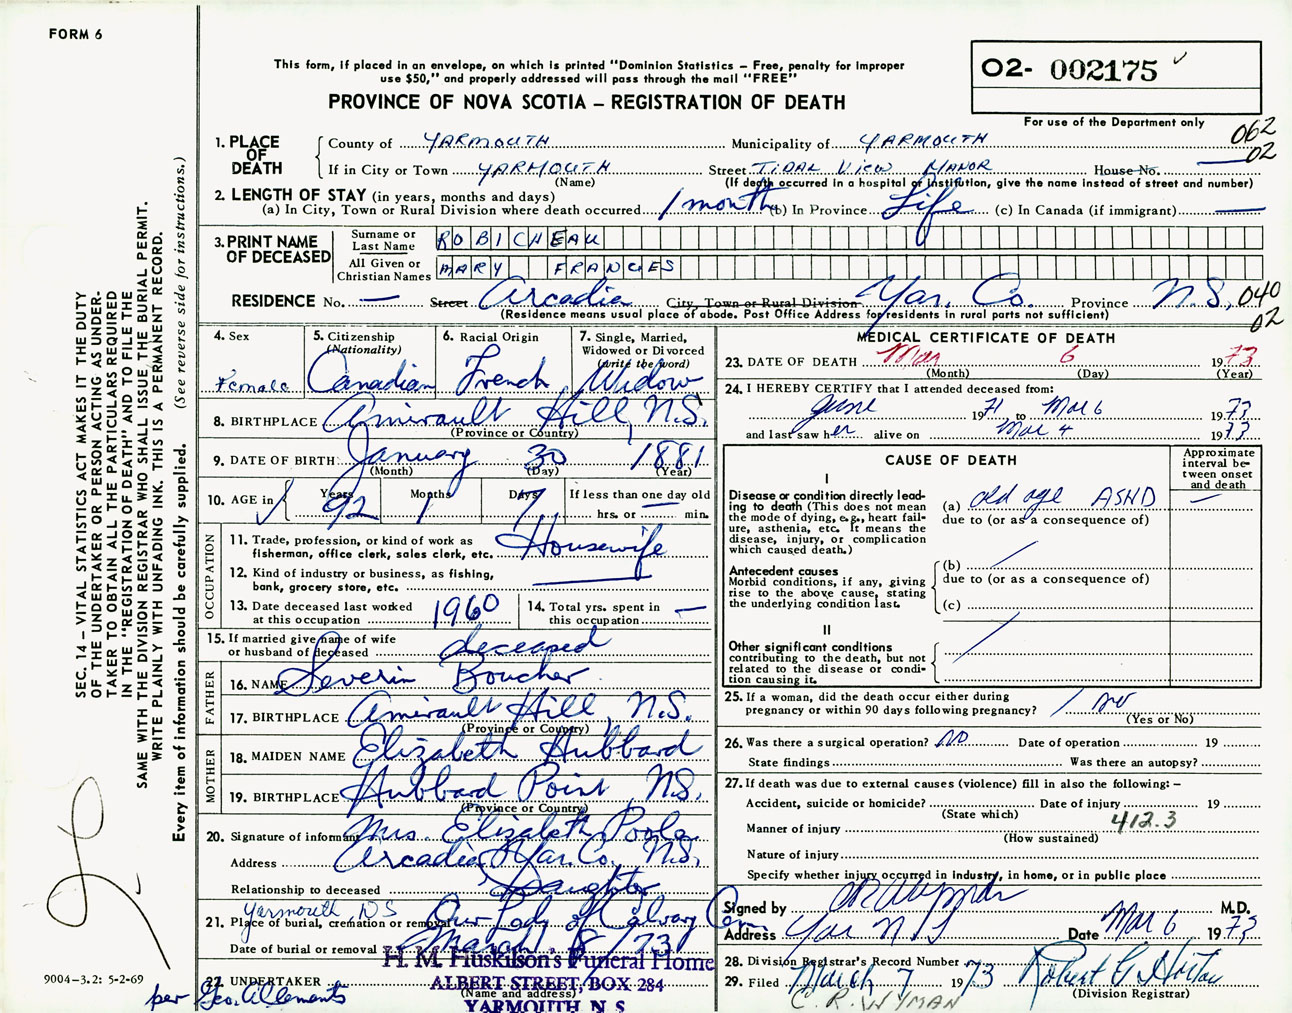 FORM 6
This form, if placed in an envelope, on which is printed "Dominion Statistics – Free, penalty for improper
use $50," and properly addressed will pass through the mail "FREE"
PROVINCE OF NOVA SCOTIA – REGISTRATION OF DEATH
02- 002175
For use of the Department only
062
02
1. PLACE OF DEATH
County of YARMOUTH Municipality of YARMOUTH
If in City or Town YARMOUTH Street TIDAL VIEW MANOR House No. —
(Name) (If death occurred in a hospital or institution, give the name instead of street and number)
2. LENGTH OF STAY (in years, months and days)
(a) In City, Town or Rural Division where death occurred 1 month (b) In Province Life (c) In Canada (if immigrant) —
3. PRINT NAME OF DECEASED
Surname or Last Name ROBICHEAU
All Given or Christian Names MARY FRANCES
RESIDENCE No. — Street Arcadia City, Town or Rural Division Yar. Co. Province N.S.
040
02
(Residence means usual place of abode. Post Office Address for residents in rural parts not sufficient)
4. Sex
Female
5. Citizenship (Nationality)
Canadian
6. Racial Origin
French
7. Single, Married, Widowed or Divorced (write the word)
Widow
8. BIRTHPLACE Amirault Hill, N.S.
(Province or Country)
9. DATE OF BIRTH January 30 1881
(Month) (Day) (Year)
10. AGE in Years 92 Months 1 Days 7 If less than one day old
hrs. or — min.
OCCUPATION
11. Trade, profession, or kind of work as
fisherman, office clerk, sales clerk, etc. Housewife
12. Kind of industry or business, as fishing,
bank, grocery store, etc. —
13. Date deceased last worked at this occupation 1960
14. Total yrs. spent in this occupation —
15. If married give name of wife
or husband of deceased deceased
FATHER
16. NAME Severin Boucher
17. BIRTHPLACE Amirault Hill, N.S.
(Province or Country)
MOTHER
18. MAIDEN NAME Elizabeth Hubbard
19. BIRTHPLACE Hubbard Point N.S.
(Province or Country)
20. Signature of informant Mrs. Elizabeth Poole
Address Arcadia Yar. Co. N.S.
Relationship to deceased Daughter
21. Place of burial, cremation or removal Yarmouth, NS Our Lady of Calvary Cem.
Date of burial or removal March 8/73
22. UNDERTAKER
(Name and address)
H. M. Huskilson's Funeral Home
ALBERT STREET, BOX 284
YARMOUTH, N. S.
per Geo. A. Clements
MEDICAL CERTIFICATE OF DEATH
23. DATE OF DEATH Mar 6 1973
(Month) (Day) (Year)
24. I HEREBY CERTIFY that I attended deceased from:
June 1971 to Mar 6 1973
and last saw her alive on Mar 4 1973
CAUSE OF DEATH
Approximate interval between onset and death
I
Disease or condition directly leading to death (This does not mean the mode of dying, e.g., heart failure, asthenia, etc. It means the disease, injury, or complication which caused death.)
(a) old age ASHD —
due to (or as a consequence of)
Antecedent causes
Morbid conditions, if any, giving rise to the above cause, stating the underlying condition last.
(b)
due to (or as a consequence of)
(c)
II
Other significant conditions
contributing to the death, but not related to the disease or condition causing it.
25. If a woman, did the death occur either during
pregnancy or within 90 days following pregnancy? no
(Yes or No)
26. Was there a surgical operation? NO Date of operation 19
State findings Was there an autopsy?
27. If death was due to external causes (violence) fill in also the following: –
Accident, suicide or homicide? Date of injury 19
(State which)
412.3
Manner of injury
(How sustained)
Nature of injury
Specify whether injury occurred in industry, in home, or in public place
Signed by M.D.
Address Yar N S Date Mar 6 1973
28. Division Registrar's Record Number
29. Filed March 7 1973 Robert G. Horton
(Division Registrar)
C. R. WYMAN
SEC. 14 – VITAL STATISTICS ACT MAKES IT THE DUTY
OF THE UNDERTAKER OR PERSON ACTING AS UNDER-
TAKER TO OBTAIN ALL THE PARTICULARS REQUIRED
IN THE "REGISTRATION OF DEATH" AND TO FILE THE
SAME WITH THE DIVISION REGISTRAR WHO SHALL ISSUE THE BURIAL PERMIT.
WRITE PLAINLY WITH UNFADING INK. THIS IS A PERMANENT RECORD.
Every item of information should be carefully supplied. (See reverse side for instructions.)
9004–3.2: 5-2-69